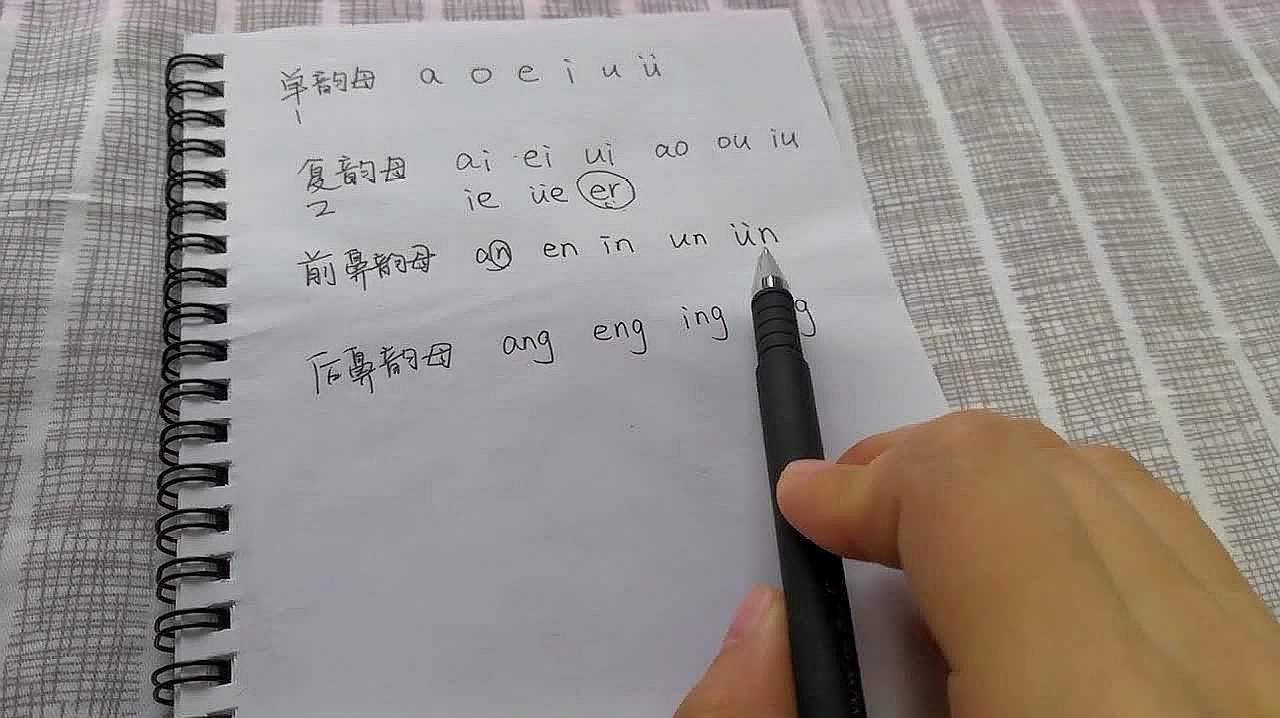 单韵母 a o e i u ü
1
复韵母 ai ei ui ao ou iu
2 ie üe er
前鼻韵母 an en in un ün
后鼻韵母 ang eng ing